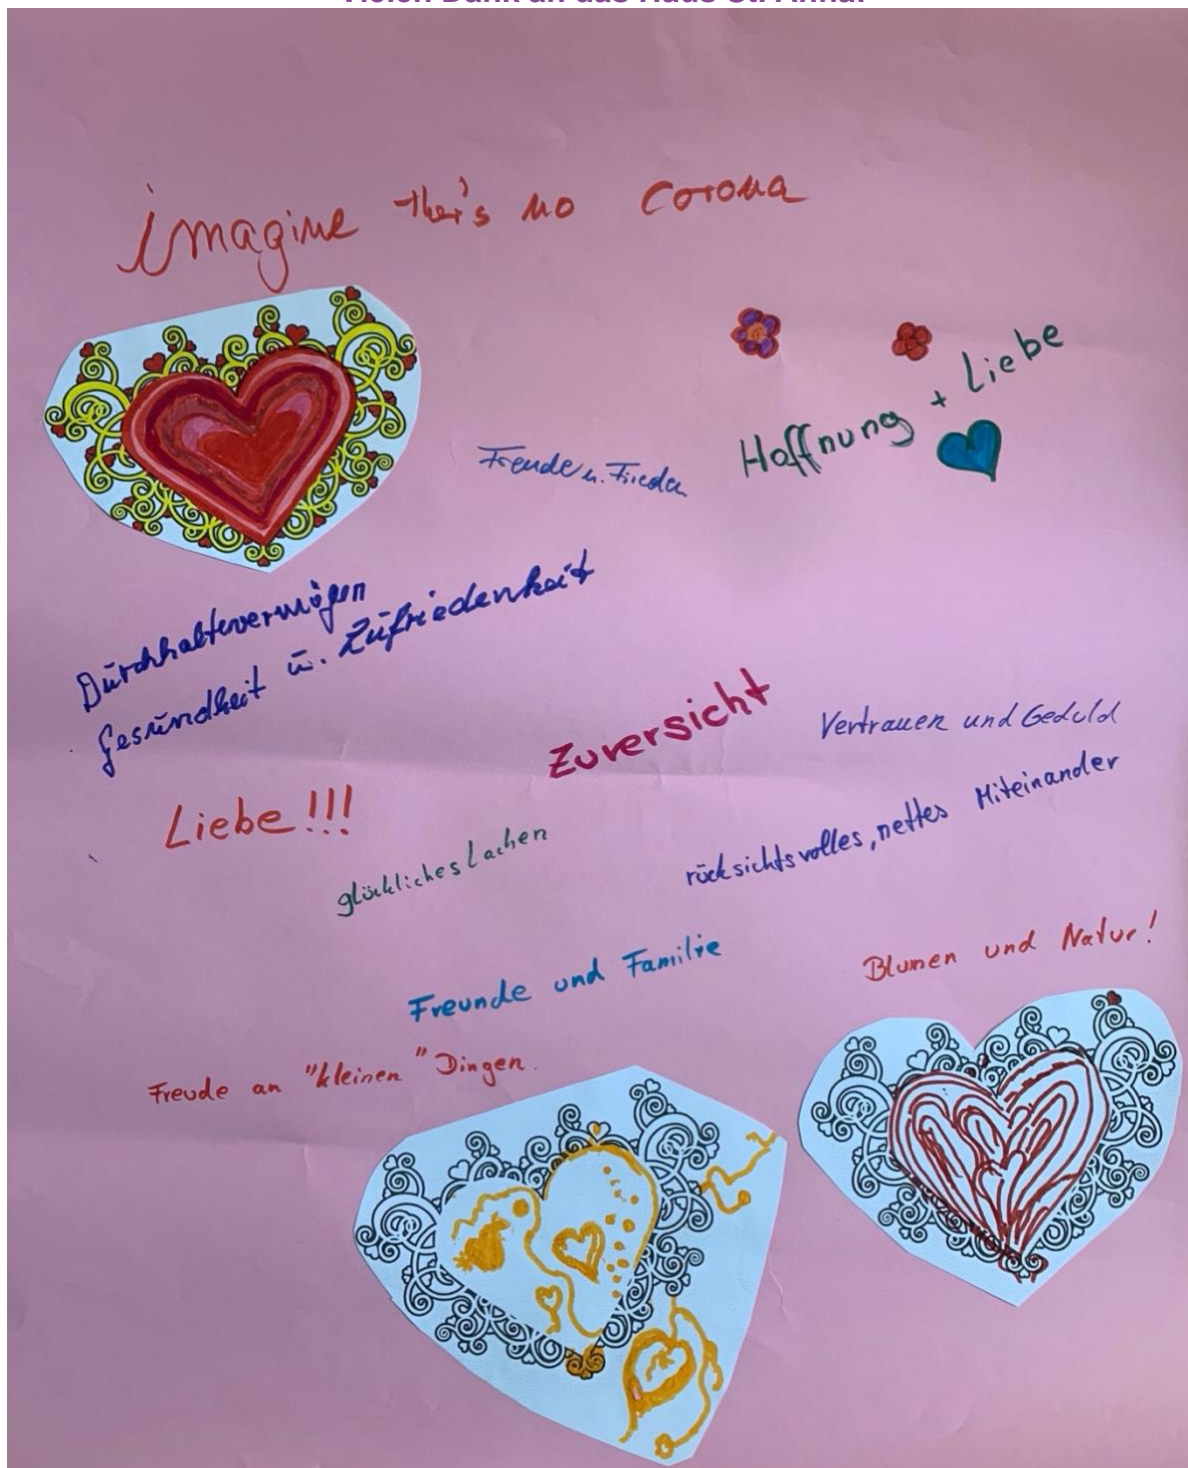 Vielen Dank an das Haus St. Anna!
imagine ther's no corona
Hoffnung + Liebe
Freude u. Frieden
Durchhaltevermögen
Gesundheit u. Zufriedenheit
Zuversicht
Vertrauen und Geduld
Liebe!!!
glückliches Lachen
rücksichtsvolles, nettes Miteinander
Freunde und Familie
Blumen und Natur!
Freude an "kleinen" Dingen.